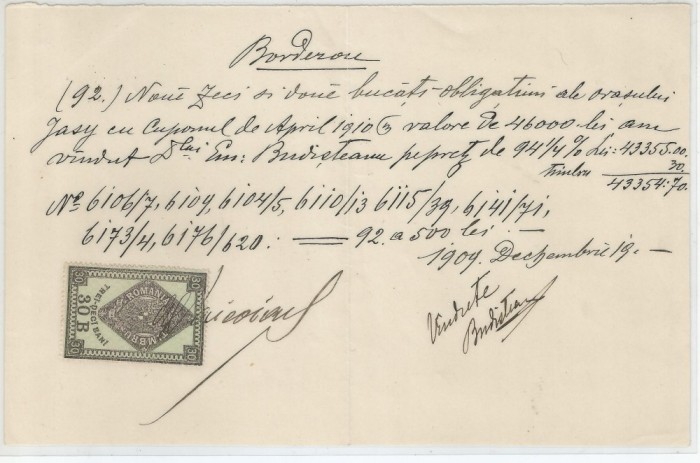 Borderou
(92.) Nouě zeci si douě bucăti obligatiuni ale orasului
Jasy cu Cuponul de April 1910 in valore de 46000 lei am
vindut Dlui Em: Budisteanu pe pretz de 94 1/4 % Lei: 43355.00
timbru 30.
43354:70.
No 6106/7, 6109, 6104/5, 6110/13 6115/39, 6141/71,
6173/4, 6176/620. : — 92. a 500 lei. —
1909. Dechembrie 19. —
Vindute
Budisteanu
30 30
ROMANIA
TIMBRU
TREI-DECI BANI
30 B
30 30